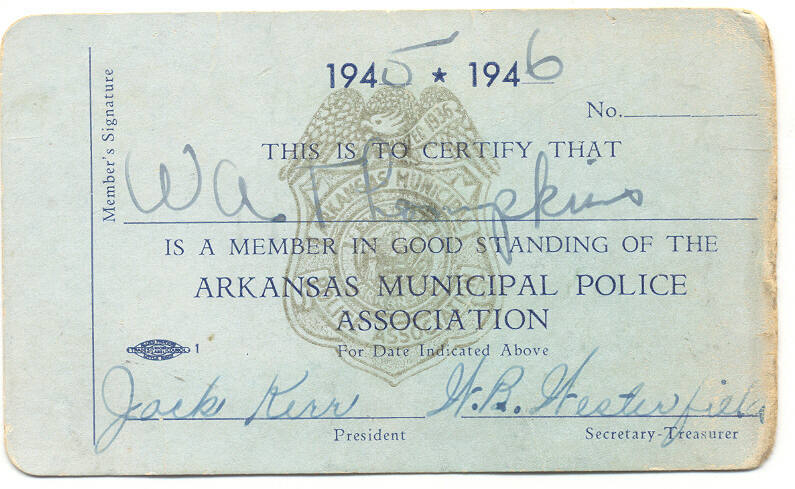 1945 ★ 1946
No.
Member's Signature
THIS IS TO CERTIFY THAT
W A. Thompkins
IS A MEMBER IN GOOD STANDING OF THE
ARKANSAS MUNICIPAL POLICE
ASSOCIATION
For Date Indicated Above
1
Jack Kerr W. B. Westerfield
President Secretary-Treasurer
ARKANSAS MUNICIPAL